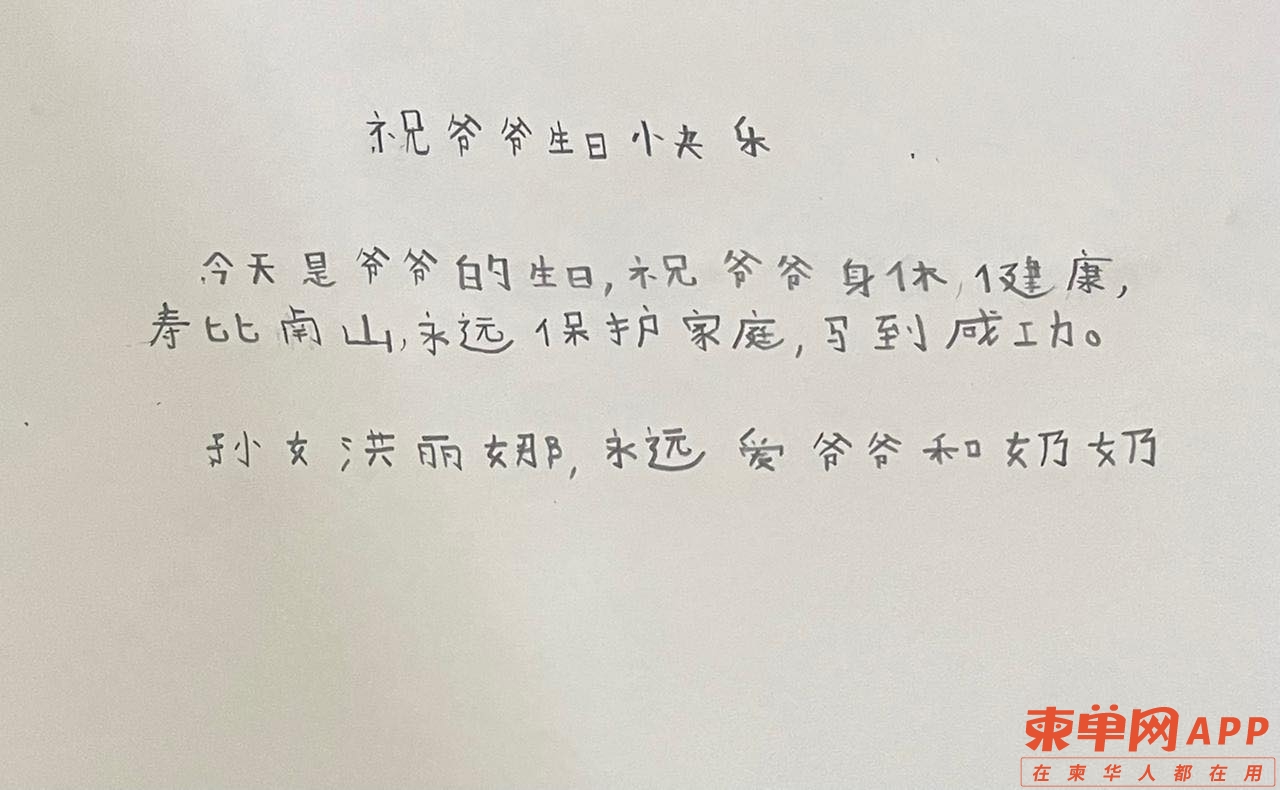 祝爷爷生日快乐
今天是爷爷的生日,祝爷爷身体,健康,
寿比南山,永远保护家庭,马到成功。
孙女洪丽娜,永远爱爷爷和奶奶
柬单网APP
在柬华人都在用